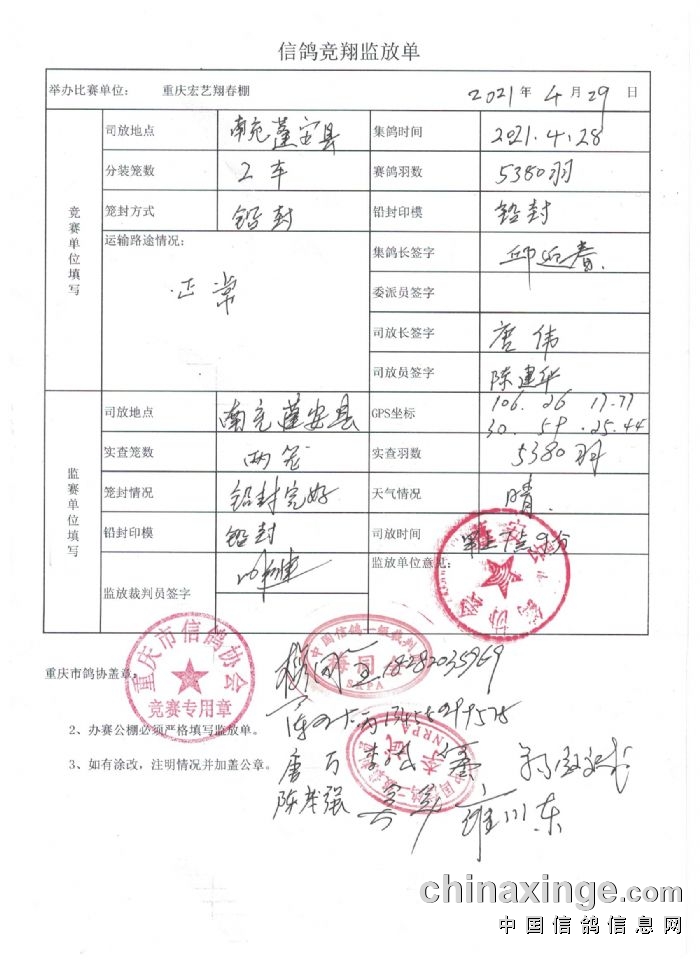 信鸽竞翔监放单
举办比赛单位: 重庆宏艺翔春棚 2021 年 4 月 29 日
竞赛单位填写
司放地点 南充蓬安县 集鸽时间 2021.4.28
分装笼数 2车 赛鸽羽数 5380羽
笼封方式 铅封 铅封印模 铅封
运输路途情况: 正常 集鸽长签字 邱
委派员签字
司放长签字 唐伟
司放员签字 陈建华
监赛单位填写
司放地点 南充蓬安县 GPS坐标 106.26 17.77
30.59.25.44
实查笼数 两笼 实查羽数 5380羽
笼封情况 铅封完好 天气情况 晴
铅封印模 铅封 司放时间 9分
监放裁判员签字 监放单位意见:
重庆市鸽协盖章:
重庆市信鸽协会
竞赛专用章
中国信鸽一级裁判
SRPA
2、办赛公棚必须严格填写监放单。
3、如有涂改，注明情况并加盖公章。
唐万
陈茂强
chinaxinge.com
中国信鸽信息网